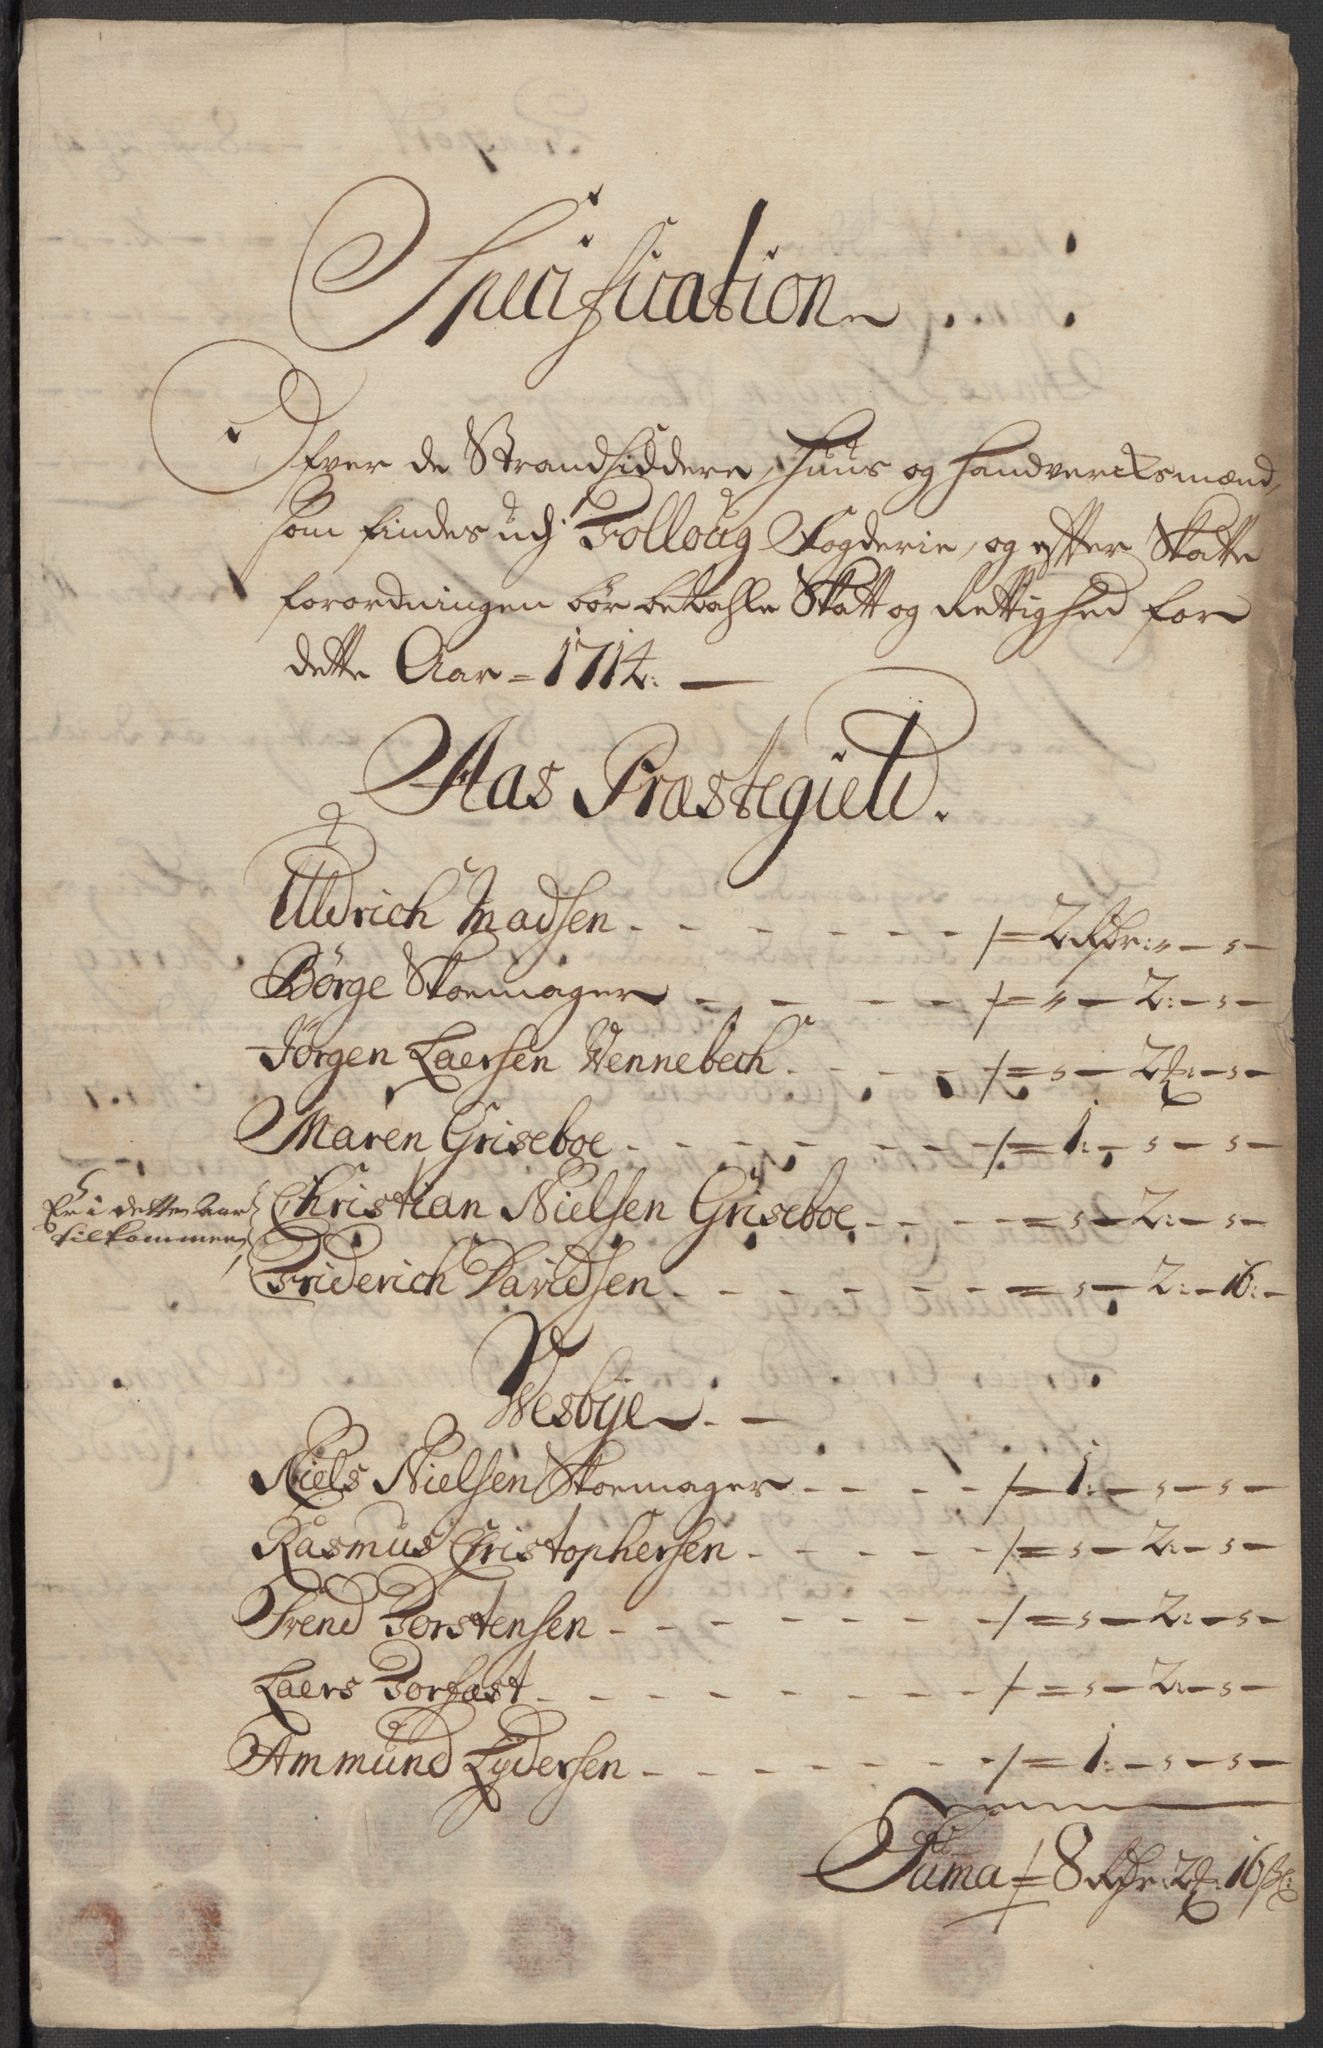 Specification
Ofver de Strandsiddere, Huus og Handvercksmænd,
som findes udj Folloug Fogderie, og efter Skatte
forordningen bør betahle Skatt og Rettighed for
dette Aar = 1714. —
Aas Præstegield.
Uldrich Madsen - - - - - - - /= 2 Rdr: „ — s —
Børge Skoemager - - - - - /= „ — 2: — s —
Jörgen Laersen Wennebech - - - - /= s — 2 — s —
Maren Griseboe - - - - - - - /= 1: — s — s —
Er i dette Aar tilkommen,
Christian Nielsen Griseboe - - - - = s — 2: — s —
Friderich Davidsen - - - - - - = s — 2: — 16: —
Wesbye - —
Niels Nielsen Skoemager - - - - /= 1: — s — s —
Rasmus Christophersen - - - - - /= s — 2: — s —
Svend Torstensen - - - - - - - /= s — 2: — s —
Laers Torfæst - - - - - - - - /= s — 2: — s —
Ammund Lydersen - - - - - - - /= 1: — s — s —
Suma = 8 Rdr: 2 16